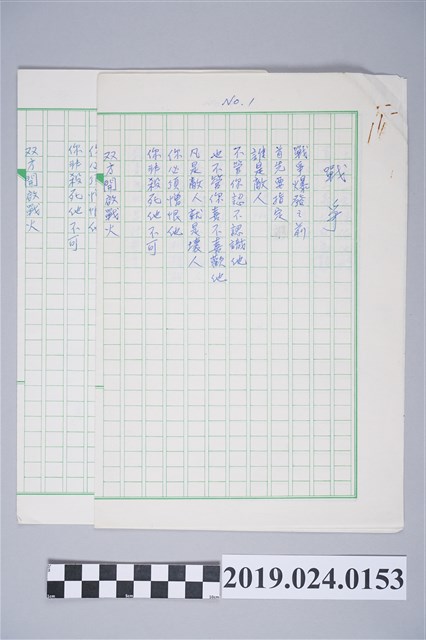 No. 1
戰爭
戰爭爆發之前
首先要指定
誰是敵人
不管你認不認識他
也不管你喜不喜歡他
凡是敵人就是壞人
你必須憎恨他
你非殺死他不可
双方開啟戰火
你非殺死他不可
双方開啟戰火
2019.024.0153